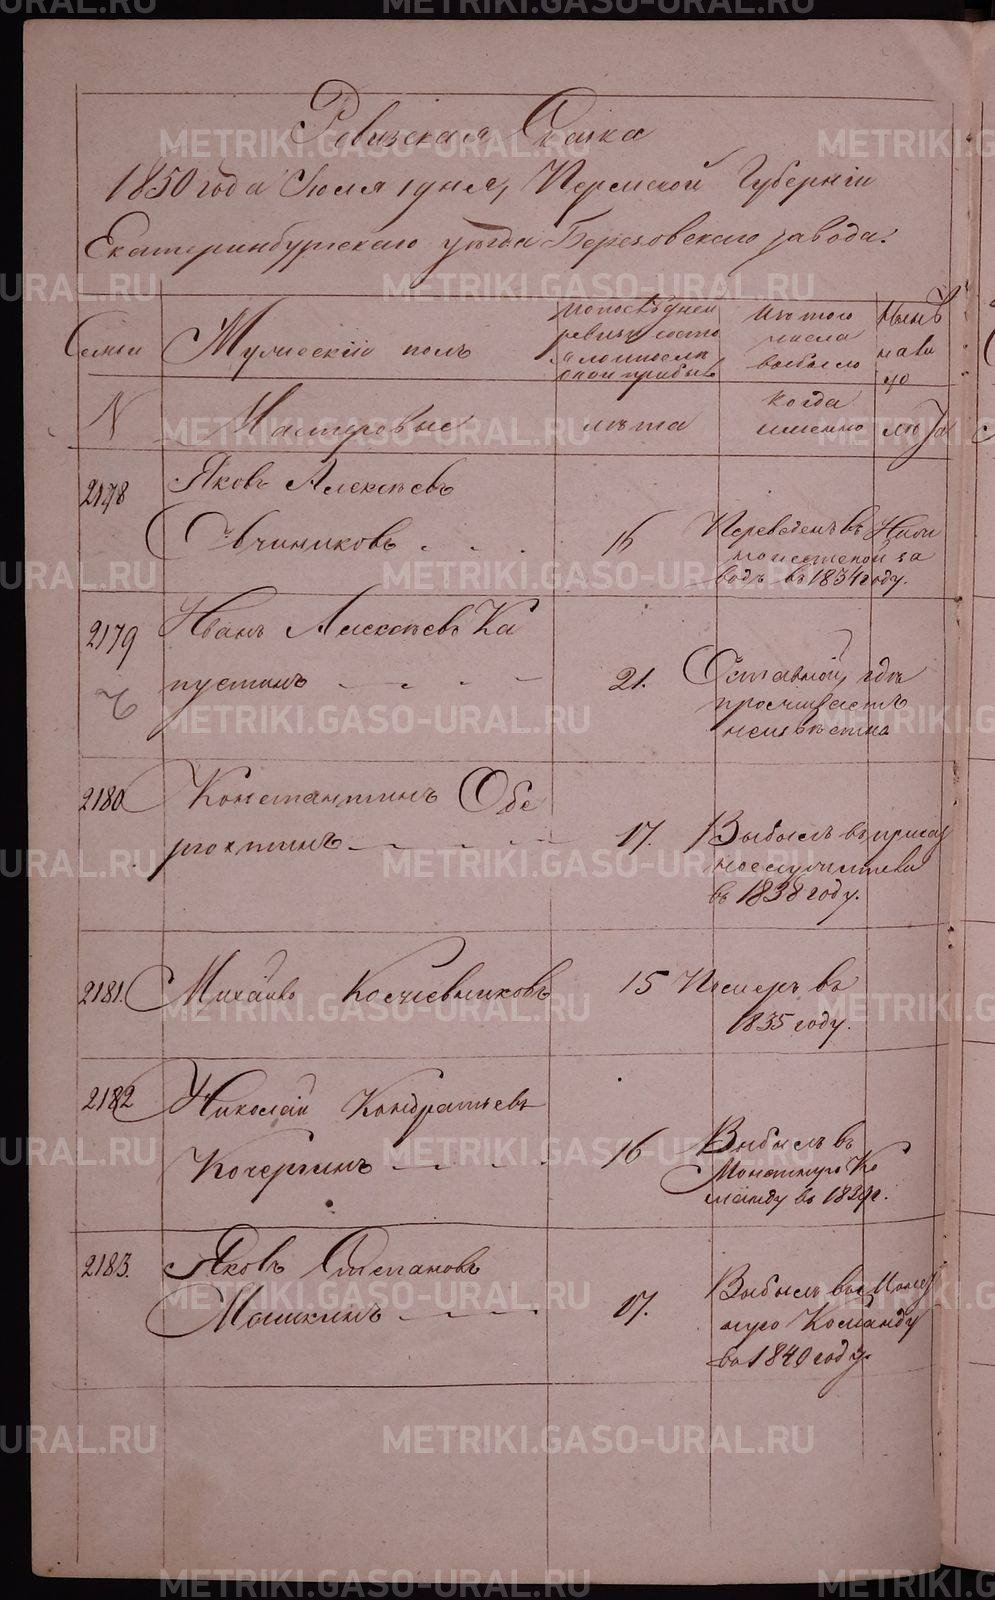 Ревизская Сказка
1850 года Июля 1 дня, Пермской Губернии
Екатеринбургскаго уезда Березовскаго завода.
Семьи
Мужескій полъ
По последней
ревизіи состо
яло и после
оной прибыло
Изъ того
числа
выбыло
Ныне
на ли
цо
N
Мастеровые
лета
Когда
именно
лета
2178
Яковъ Алексеевъ
Овчиниковъ
16
Переведенъ въ Ниж
за
водъ въ 1834 году.
2179
Иванъ Алексеевъ Ка
пустинъ
21.
неизвестна
2180
Константинъ Обе
рюхтинъ
17.
Выбылъ въ
въ 1838 году.
2181.
Михайло
15
Померъ въ
1835 году.
2182
Николай Кондратьевъ
Кочергинъ
16
Выбылъ въ
Монетную Ко
манду въ 1839 г.
2183.
Яковъ Степановъ
Мошкинъ
17.
Выбылъ въ Монет
ную Команду
въ 1840 году.
METRIKI.GASO-URAL.RU